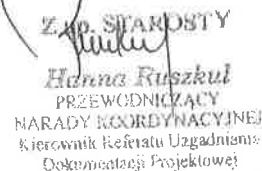 Z up. STAROSTY
Hanna Ruszkul
PRZEWODNICZĄCY
NARADY KOORDYNACYJNEJ
Kierownik Referatu Uzgadniania
Dokumentacji Projektowej